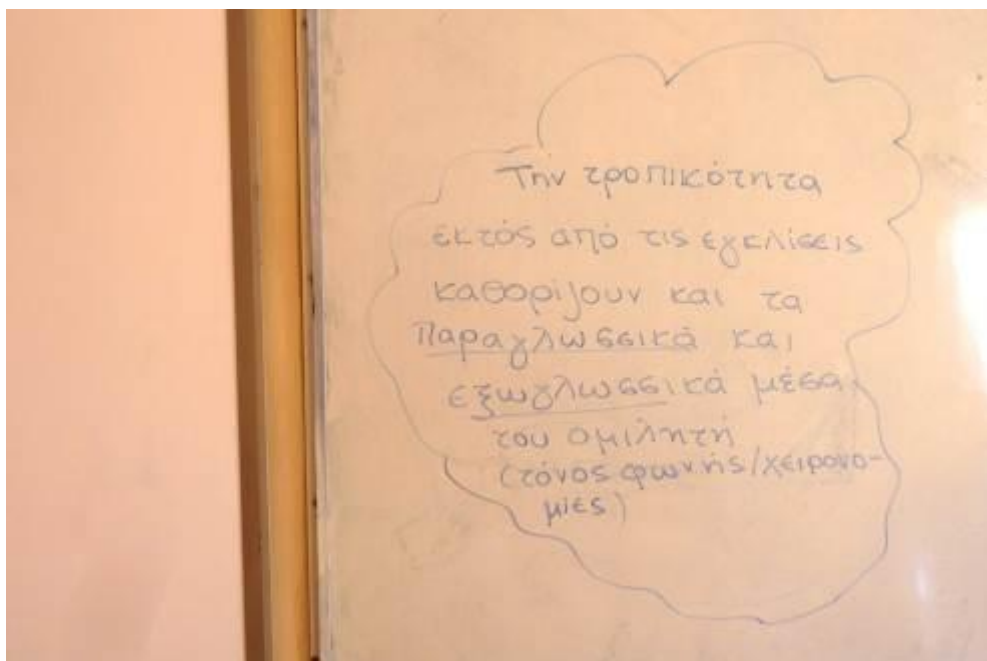 Την τροπικότητα
εκτός από τις εγκλίσεις
καθορίζουν και τα
παραγλωσσικά και
εξωγλωσσικά μέσα
του ομιλητή
(τόνος φωνής/χειρονο-
μίες)